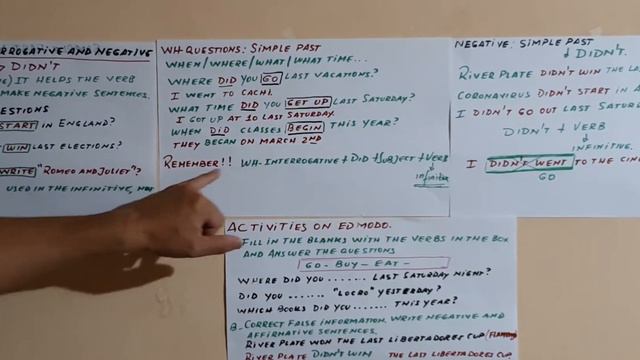 RROGATIVE AND NEGATIVE
DIDN'T
IT HELPS THE VERB
MAKE NEGATIVE SENTENCES.
ESTIONS
START IN ENGLAND?
WIN LAST ELECTIONS?
WRITE "ROMEO AND JULIET"?
USED IN THE INFINITIVE, NOT
WH QUESTIONS: SIMPLE PAST
WHEN/WHERE/WHAT/WHAT TIME...
WHERE DID YOU GO LAST VACATIONS?
I WENT TO CACHI.
WHAT TIME DID YOU GET UP LAST SATURDAY?
I GOT UP AT 10 LAST SATURDAY.
WHEN DID CLASSES BEGIN THIS YEAR?
THEY BEGAN ON MARCH 2ND
REMEMBER!! WH-INTERROGATIVE + DID + SUBJECT + VERB
INFINITIVE
NEGATIVE: SIMPLE PAST
DIDN'T.
RIVER PLATE DIDN'T WIN THE LA
CORONAVIRUS DIDN'T START IN A
I DIDN'T GO OUT LAST SATURD
DIDN'T + VERB
INFINITIVE.
I DIDN'T WENT TO THE CIN
GO
ACTIVITIES ON EDMODO.
FILL IN THE BLANKS WITH THE VERBS IN THE BOX
AND ANSWER THE QUESTIONS
GO - BUY - EAT -
WHERE DID YOU ....... LAST SATURDAY NIGHT?
DID YOU ....... "LOCRO" YESTERDAY?
WHICH BOOKS DID YOU ....... THIS YEAR?
B- CORRECT FALSE INFORMATION. WRITE NEGATIVE AND
AFFIRMATIVE SENTENCES.
RIVER PLATE WON THE LAST LIBERTADORES CUP
RIVER PLATE DIDN'T WIN THE LAST LIBERTADORES CUP.